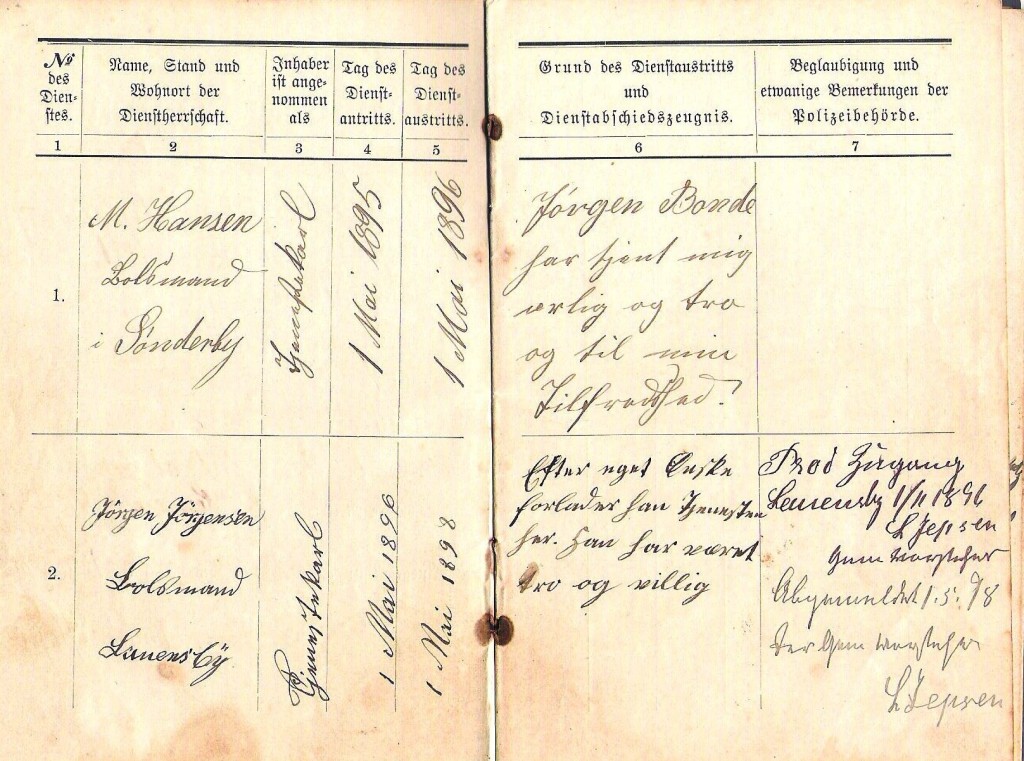 №
des
Dien-
stes.
Name, Stand und
Wohnort der
Dienstherrschaft.
Inhaber
ist ange-
nommen
als
Tag des
Dienst-
antritts.
Tag des
Dienst-
austritts.
Grund des Dienstaustritts
und
Dienstabschiedszeugnis.
Beglaubigung und
etwanige Bemerkungen der
Polizeibehörde.
1
2
3
4
5
6
7
1.
M. Hansen
Bolsmand
i Sönderby
Tjenestekarl
1 Mai 1895
1 Mai 1896
Jörgen Bonde
har tjent mig
ærlig og tro
og til min
Tilfredshed.
2.
Jörgen Jörgensen
Bolsmand
Lauensby
Tjenestekarl
1 Mai 1896
1 Mai 1898
Efter eget Önske
forlader han Tjenesten
her. Han har været
tro og villig
Zugang
Lauensby 1896
L Jepsen
Gem vorsteher
Abgemeldet 1.5.98
Der Gem vorsteher
L Jepsen